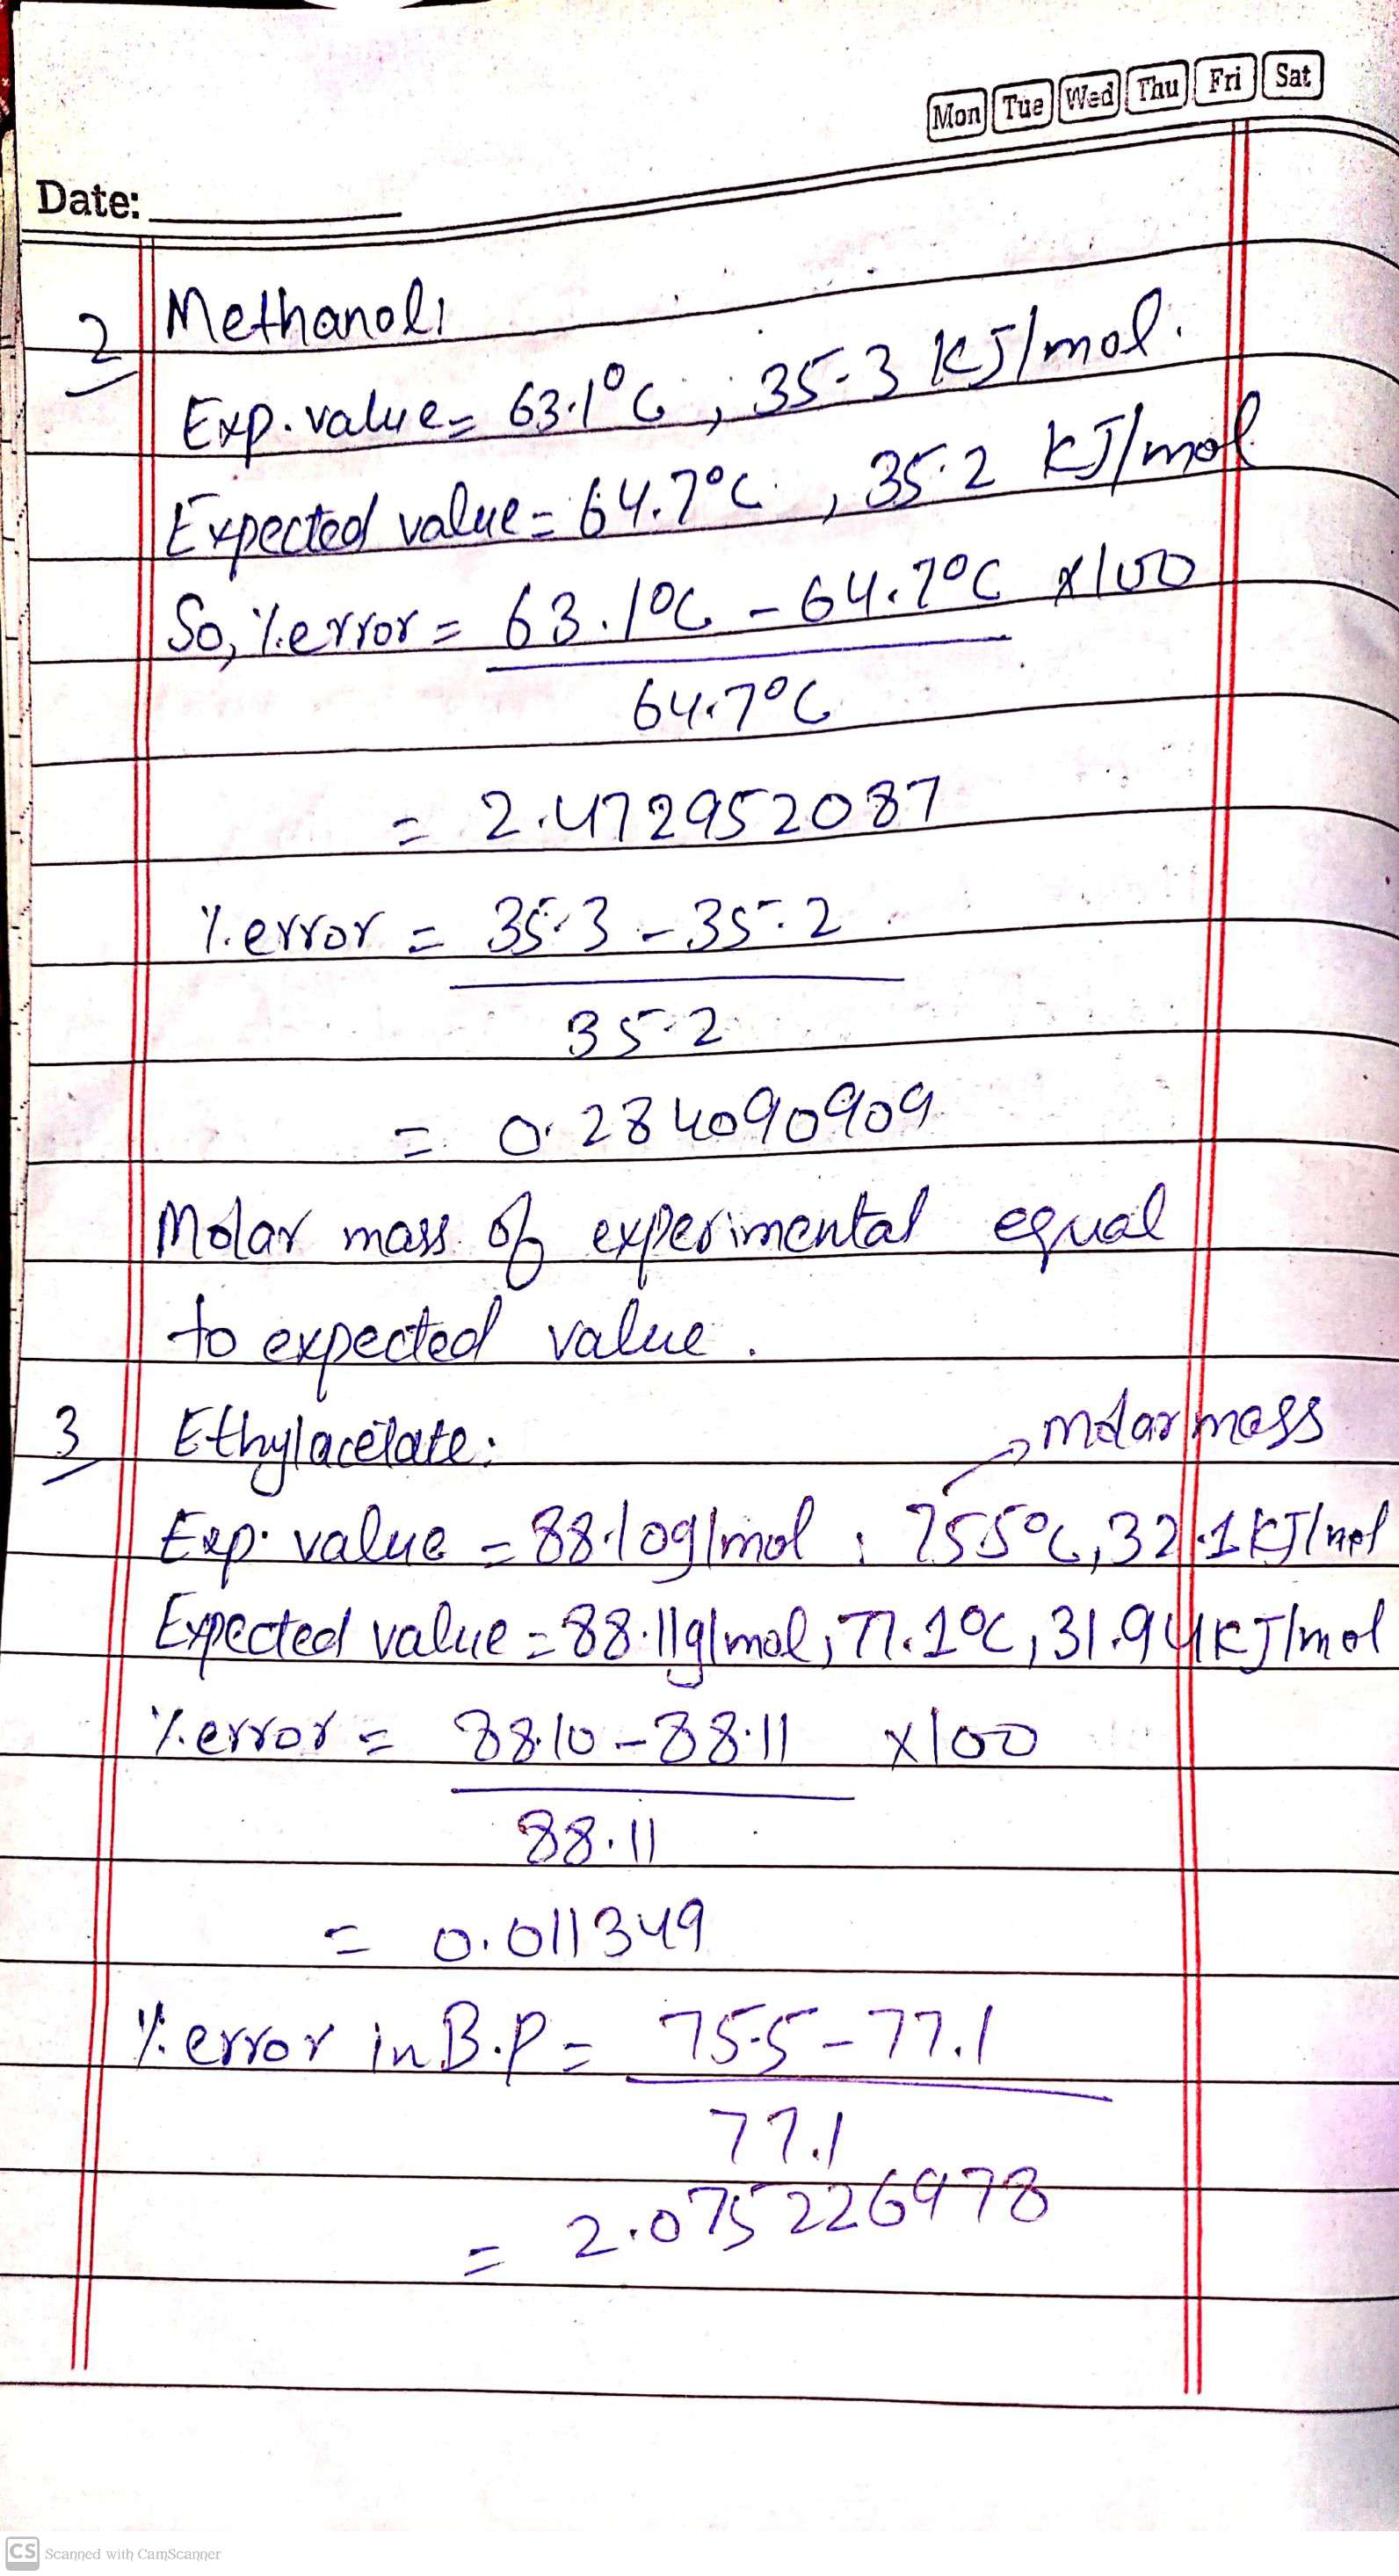 Mon Tue Wed Thu Fri Sat
Date:
2 Methanol:
Exp. value = 63.1°C, 35.3 KJ/mol.
Expected value = 64.7°C, 35.2 KJ/mol
So, %error = 63.1°C - 64.7°C x100
64.7°C
= 2.472952087
%error = 35.3 - 35.2
35.2
= 0.284090909
Molar mass of experimental equal
to expected value.
3 Ethylacetate:
molar mass
Exp. value = 88.10g/mol, 75.5°C, 32.1KJ/mol
Expected value = 88.11g/mol, 77.1°C, 31.94KJ/mol
%error = 88.10 - 88.11 x100
88.11
= 0.011349
%error in B.P = 75.5 - 77.1
77.1
= 2.075226978
CS Scanned with CamScanner